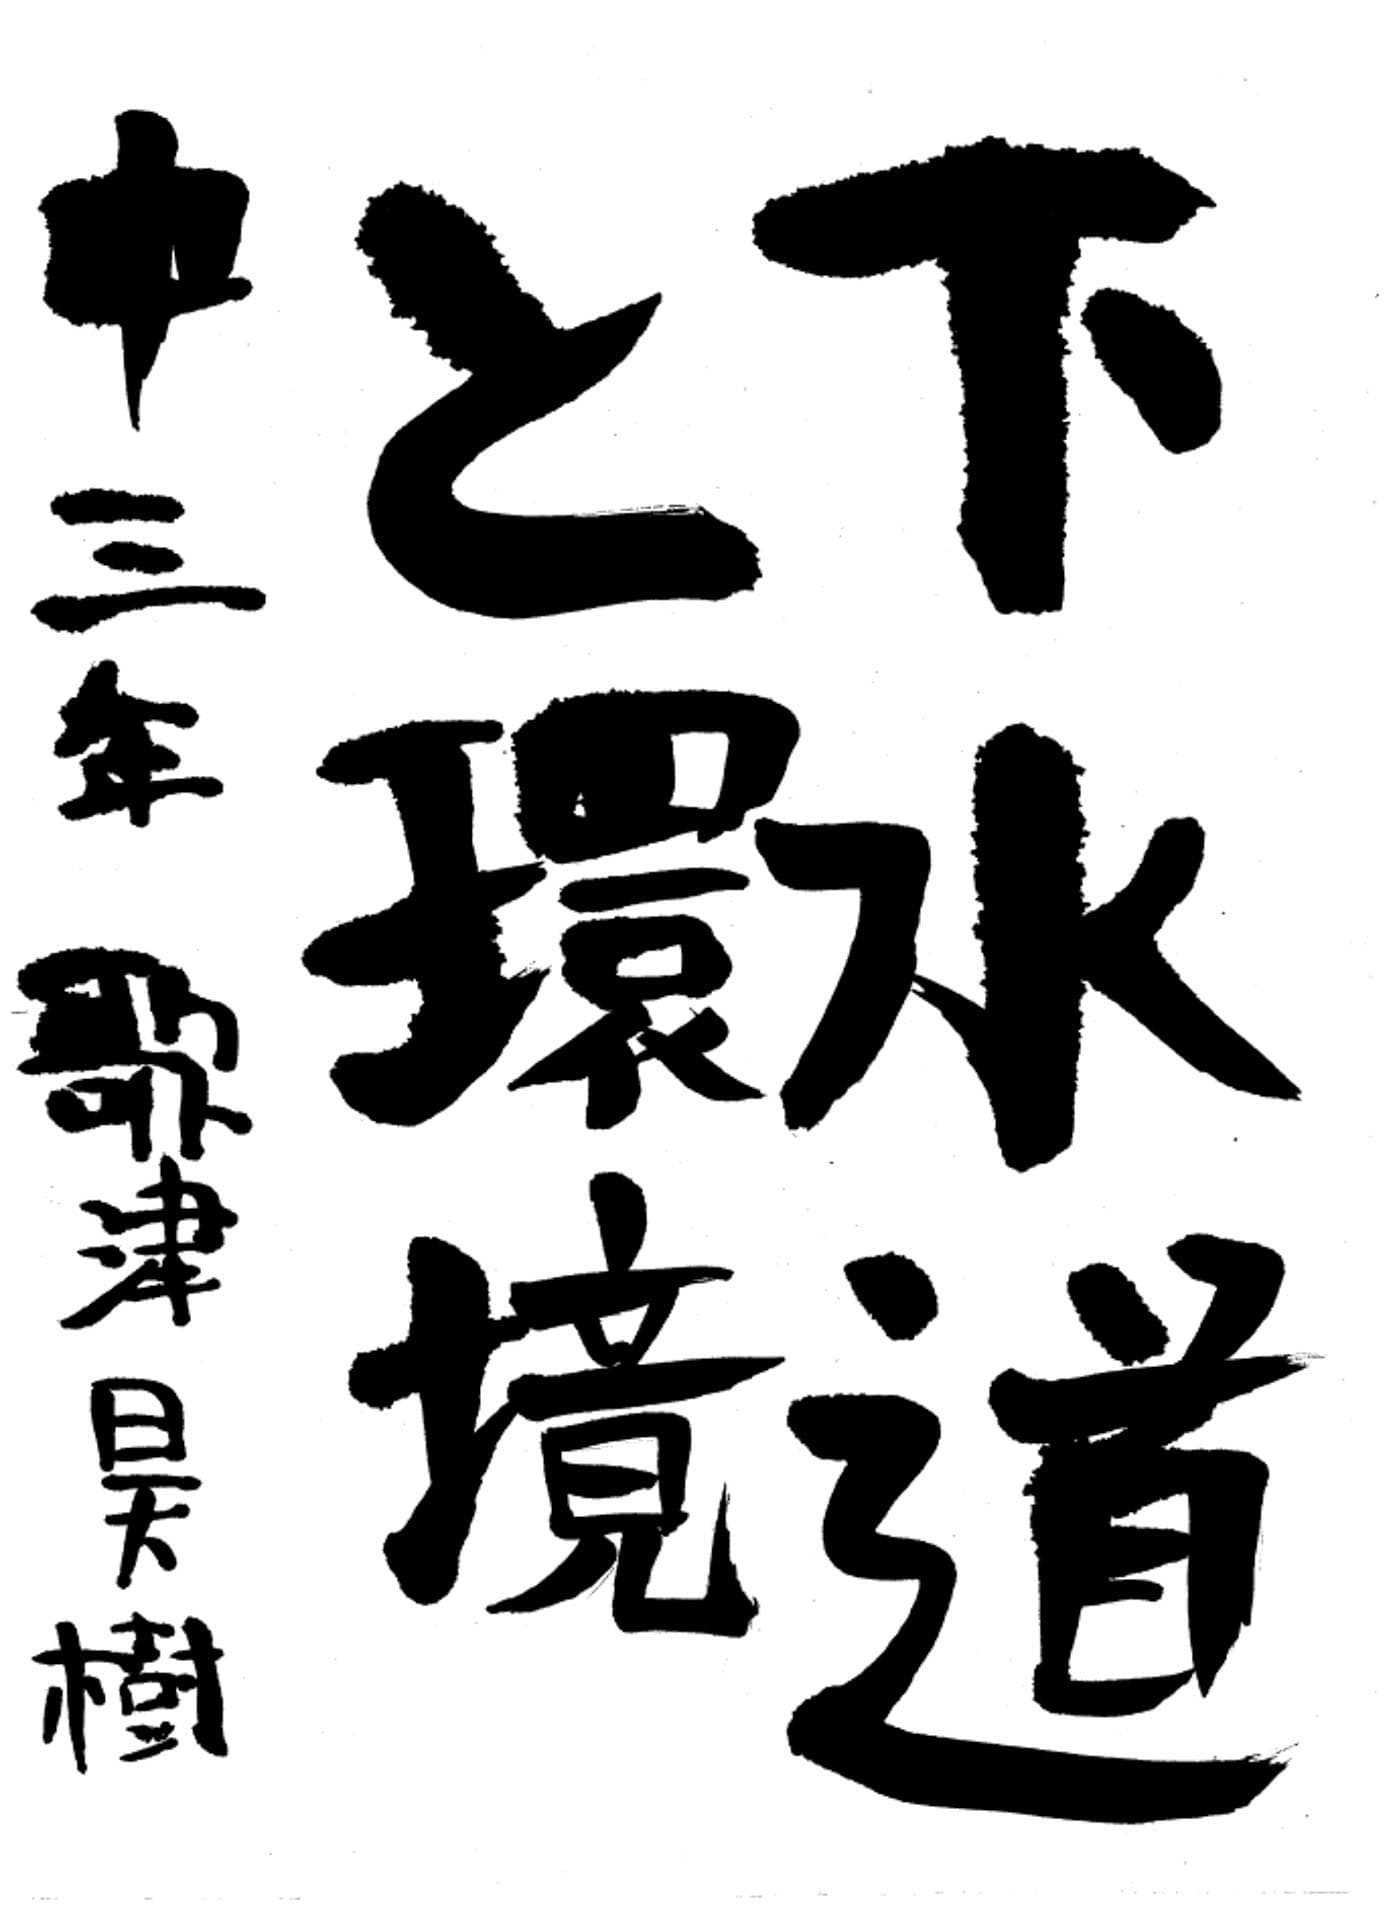 下水道
と環境
中三年 津昊樹